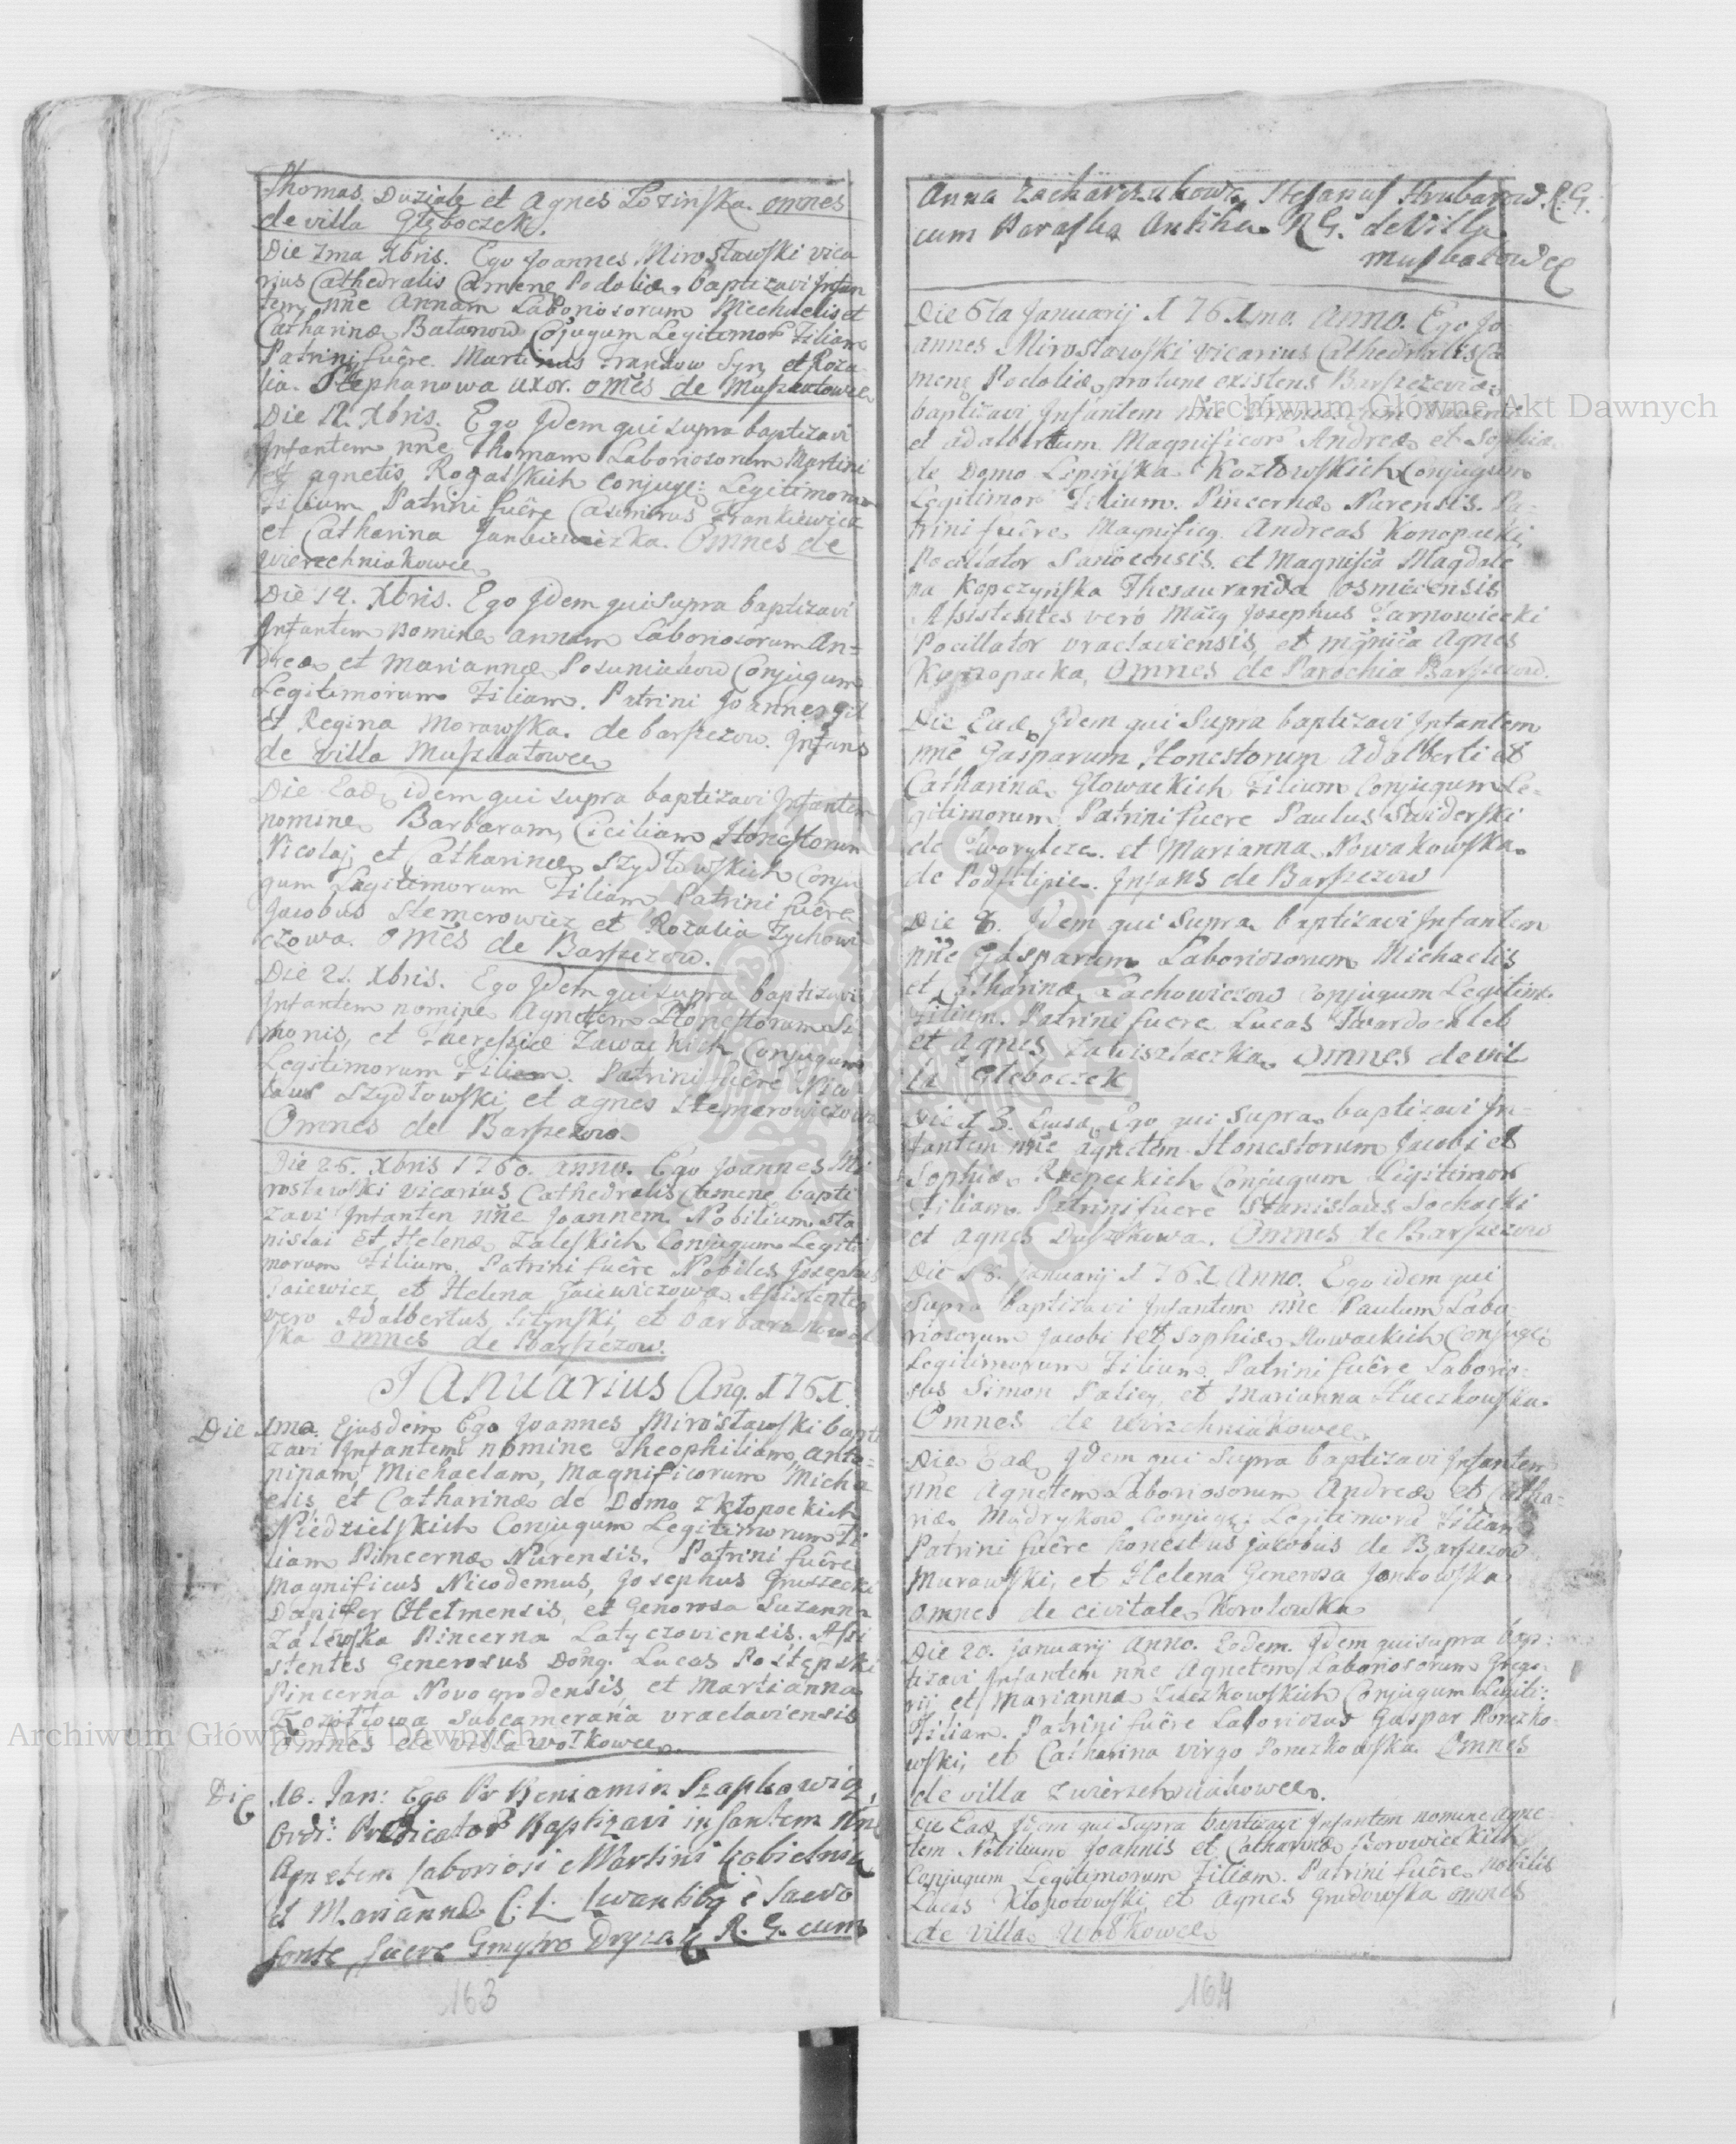 Thomas Duziak et Agnes Łozinska. omnes
de villa Głęboczek.
Die 7ma Xbris. Ego Joannes Mirosławski vica
rius Cathedralis Camene Podoliæ, baptizavi Infan
tem nñe Annam Laboriosorum Michaelis et
Catharinæ Batanow Cõjugum Legitimor Filiam
Patrini fuêre Martinus Syn et Roza
lia Stephanowa uxor. omẽs de Muszkatowce
Die 12. Xbris. Ego Jdem qui supra baptizavi
Infantem nñe Thomam Laboriosorum Martini
et agnetis Rogalskich conjugũ Legitimorum
Filium Patrini fuêre Casimirus Frankiewicz
et Catharina Omnes de
wierzchniakowce
Die 14. Xbris. Ego Jdem qui supra baptizavi
Infantem nomine annam Laboriosorum An=
dreæ et Mariannæ Conjugum
Legitimorum Filiam. Patrini Joannes Gil
et Regina Morawska. de barszczow. Infans
de villa Muszkatowce
Die Eadẽ idem qui supra baptizavi Infantem
nomine Barbaram, Ciciliam Honestorum
Nicolaj et Catharinæ Szydłowskich Conju
gum Legitimorum Filiam Patrini fuêre
Jacobus Stemerowicz et Rozalia Zychowi
czowa. omẽs de Barszczow.
Die 21. Xbris. Ego Jdem qui supra baptizavi
Infantem nomine Agnetem Honestorum Si
monis, et Theressiæ Zawackich Conjugum
Legitimorum Filiam. Patrini fuêre Nico
laus Szydłowski et agnes Stemerowiczowa
Omnes de Barszczow.
Die 26. Xbris 1760. anno. Ego Joannes Mi
rosławski vicarius Cathedralis Camene bapti
zavi Infantem nñe Joannem Nobilium Sta
nislai et Helenæ Zaleskich Conjugum Legiti
morum Filium. Patrini fuêre Nobiles Josephus
Gaiewicz, et Helena Gaiewiczowa Assistentes
vero Adalbertus et Barbara nowa
ska omnes de Barszczow.
JANUARIUS Anõ. 1761.
Die 1ma. Ejusdem Ego Joannes Mirosławski bapti
zavi Infantem nomine Theophiliam, anto=
ninam, Michaelam, Magnificorum Micha
elis et Catharinæ de Domo Zkłopockich
Niedzielskich Conjugum Legitimorum Fi
liam Pincernæ Nurensis. Patrini fuêre
Magnificus Nicodemus, Josephus Gruszecki
Dapifer Chelmensis, et Generosa Suzanna
Zalewska Pincerna Latyczoviensis. Assi
stentes Generosus Doñg. Lucas Postępski
Pincerna Novogrodensis, et Marianna
Koziołłowa Subcamerana vraclaviensis
Omnes de villa wołkowce.
Die 16. Jan: Ego Pr Beniamin Szapkowicz,
Ordi: Prædicator Baptizavi infantem Nne
Agnetem laboriosi Martini
et Mariannæ C: L: levantibg è Sacro
fonte fuere R. G. cum
163
Anna Zacharczukowa, Stefanus Hrubarow. R. G.
cum Paraska R G. de villa
Muszkatowce
Die 6ta Januarij 1761mo. Anno. Ego Jo
annes Mirosławski vicarius Cathedralis Ca
mene Podoliæ protunc existens Barszczoviæ
baptizavi Infantem nñe
et adalbertum Magnificor Andreæ et Sophiæ
de Domo Lipińska Kozłowskich Conjugum
Legitimor Filium. Pincernæ Nurensis. Pa=
trini fuêre Magnificg Andreas Konopacki
Pocillator Sanocensis. et Magnifica Magdale
na Kopczyńska Thesauranida osmecensis
Assistentes verò Maĩcg Josephus Tarnowiecki
Pocillator vraclaviensis et mgnĩca Agnes
omnes de Parochia Barszczow.
Die Eadẽ Jdem qui Supra baptizavi Infantem
nñe Gasparum Honestorum Adalberti et
Catharinæ Głowackich Filium Conjugum Le=
gitimorum. Patrini fuere Paulus Swiderski
de et Marianna Nowakowska
de Podfilipie. Infans de Barszczow
Die 8. Jdem qui Supra baptizavi Infantem
nñe Gasparum Laboriosorum Michaelis
et Catharinæ Lachowiczow Conjugum Legitim:
Filium. Patrini fuere Lucas Twardochleb
et Agnes omnes de vil
la Głeboczek
Die 13. Ejusd. Ego qui Supra baptizavi In=
fantem nñe agnetem Honestorum Jacobi et
Sophiæ Rzepeckich Conjugum Legitimor
Filiam. Patrini fuere Stanislaus Sochacki
et agnes Duszkowa. Omnes de Barszczow
Die 18. Januarij 1761 Anno. Ego idem qui
Supra baptizavi Infantem nñe Paulum Labo=
riosorum Jacobi et Sophiæ Nowackich Conjugũ
Legitimorum Filium, Patrini fuêre Laborio=
sus Simon et Marianna
Omnes de Wierzchniakowce.
Die Eadẽ Jdem qui Supra baptizavi Infantem
nñe Agnetem Laboriosorum Andreæ et Catha=
rinæ Mądrykow Conjugũ Legitimoru Filiam
Patrini fuêre honestus jacobus de Barszczow
Murawski, et Helena Generosa Jankowska
omnes de civitate Korolowka
Die 20. januarij anno. Eodem. Jdem qui supra bap:
tizavi Infantem nñe Agnetem Laboriosorum Grego=
rij et Mariannæ Conjugum Legiti:
Filiam. Patrini fuêre Laboriosus Gaspar Ronczko=
wski, et Catharina virgo Ronczkowska. Omnes
de villa Zwierzchniakowce.
Die Eadẽ Jdem qui Supra baptizavi Infantem nomine agne=
tem Nobilium Joannis et Catharinæ Borowieckich
Conjugum Legitimorum Filiam. Patrini fuêre nobilis
Lucas Kłopotowski et Agnes Grudowska omnes
de villa Wołkowce
164
Archiwum Główne Akt Dawnych
Archiwum Główne Akt Dawnych